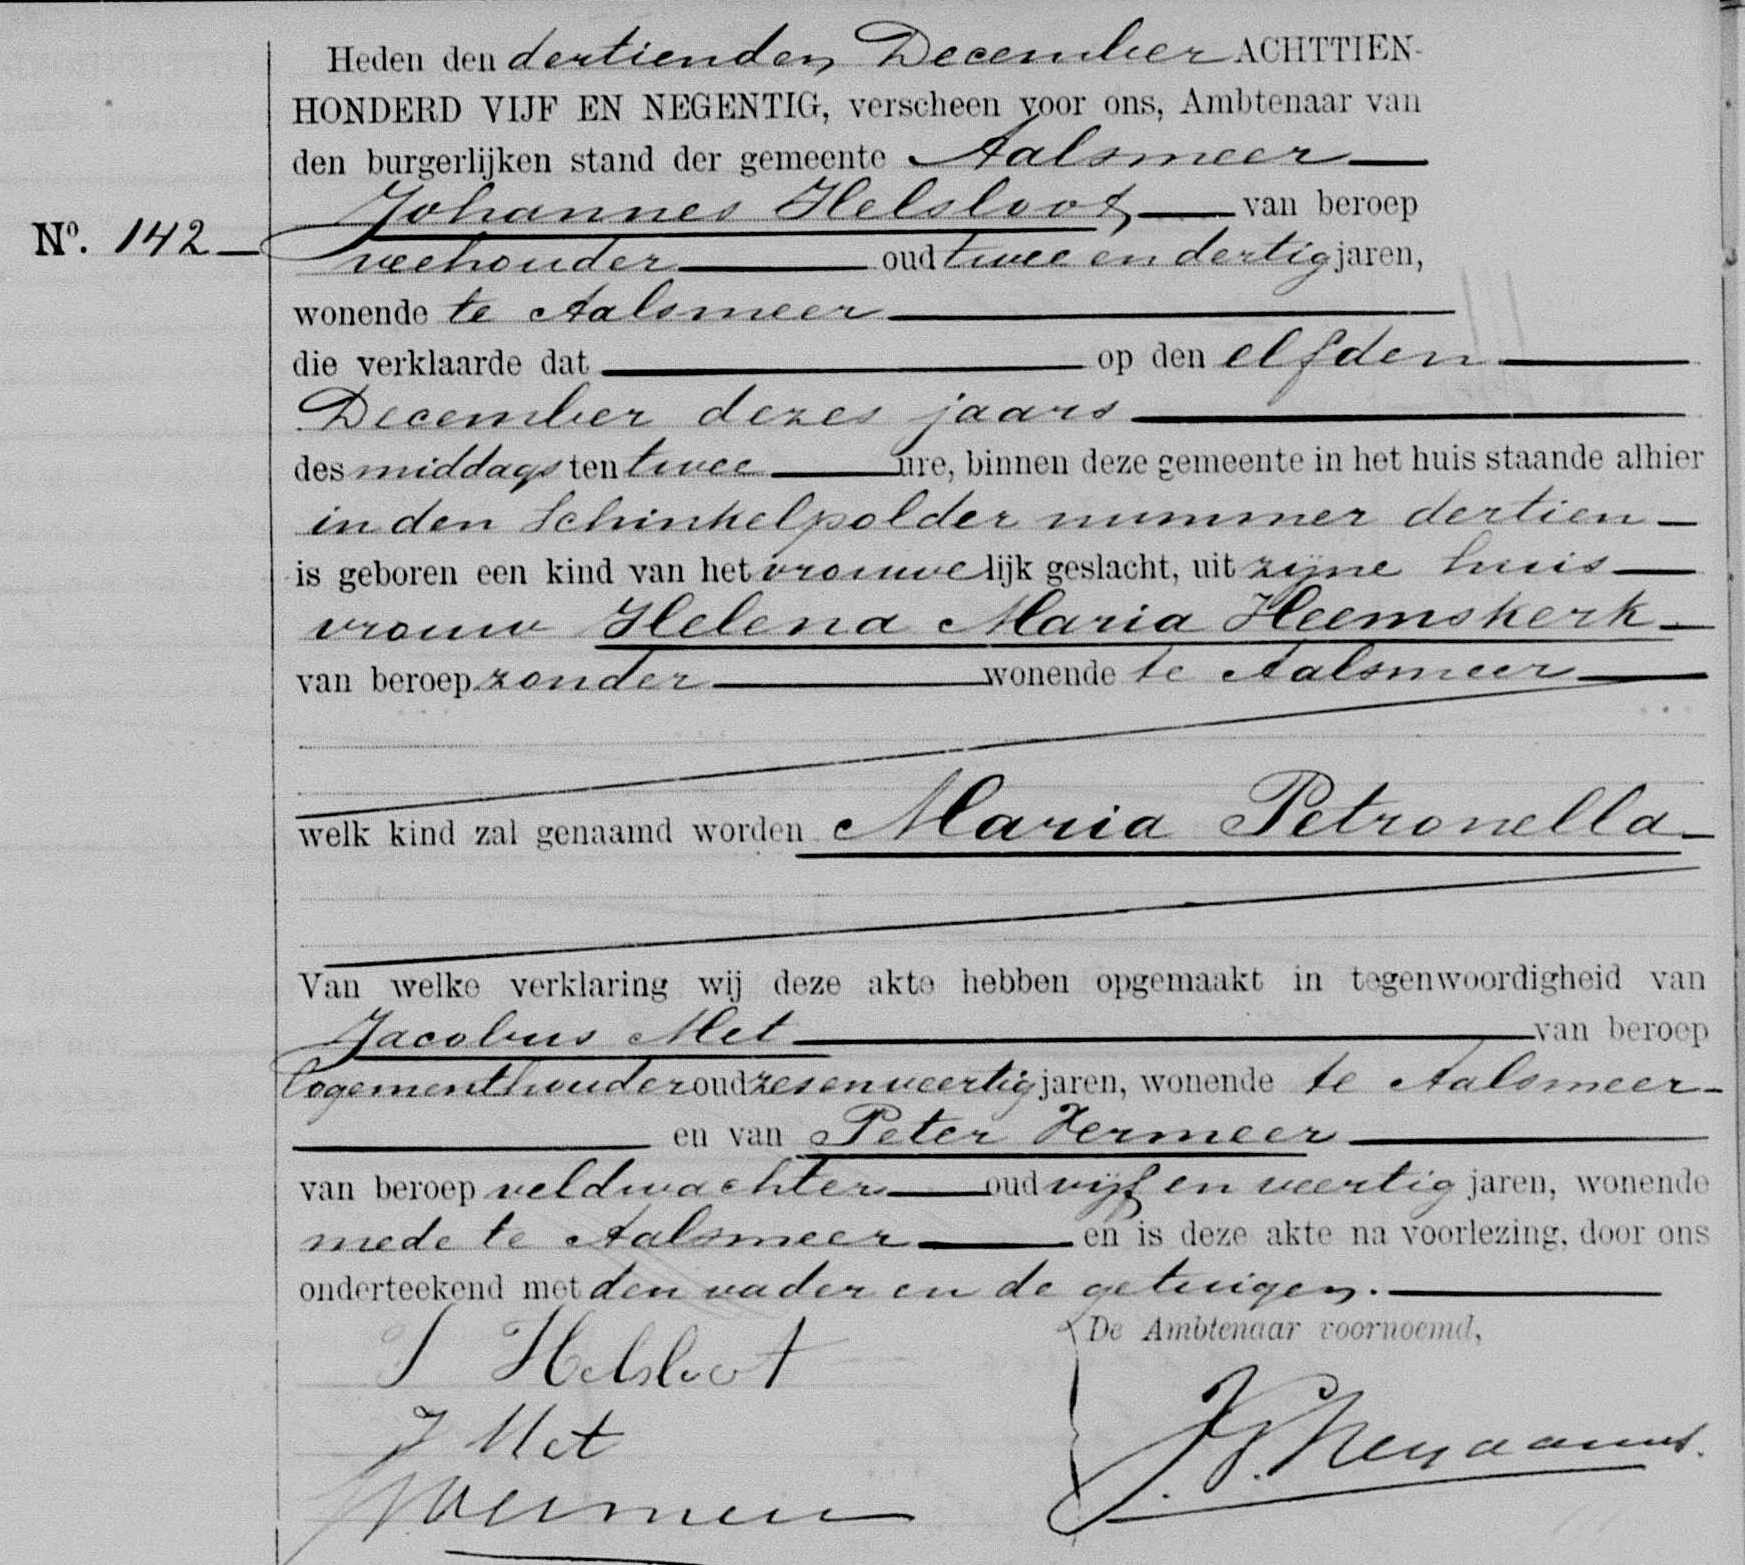 Heden den dertienden December ACHTTIEN-
HONDERD VIJF EN NEGENTIG, verscheen voor ons, Ambtenaar van
den burgerlijken stand der gemeente Aalsmeer
Johannes Helsloot, van beroep
No. 142
veehouder oud twee en dertig jaren,
wonende te Aalsmeer
die verklaarde dat op den elfden
December dezes jaars
des middags ten twee ure, binnen deze gemeente in het huis staande alhier
in den Schinkelpolder nummer dertien
is geboren een kind van het vrouwelijk geslacht, uit zijne huis
vrouw Helena Maria Heemskerk
van beroep zonder wonende te Aalsmeer
welk kind zal genaamd worden Maria Petronella
Van welke verklaring wij deze akte hebben opgemaakt in tegenwoordigheid van
Jacobus Met van beroep
logementhouder oud zesenveertig jaren, wonende te Aalsmeer
en van Peter Vermeer
van beroep veldwachter oud vijf en veertig jaren, wonende
mede te Aalsmeer en is deze akte na voorlezing, door ons
onderteekend met den vader en de getuigen.
De Ambtenaar voornoemd,
J Helsloot
J Met
PVermeer